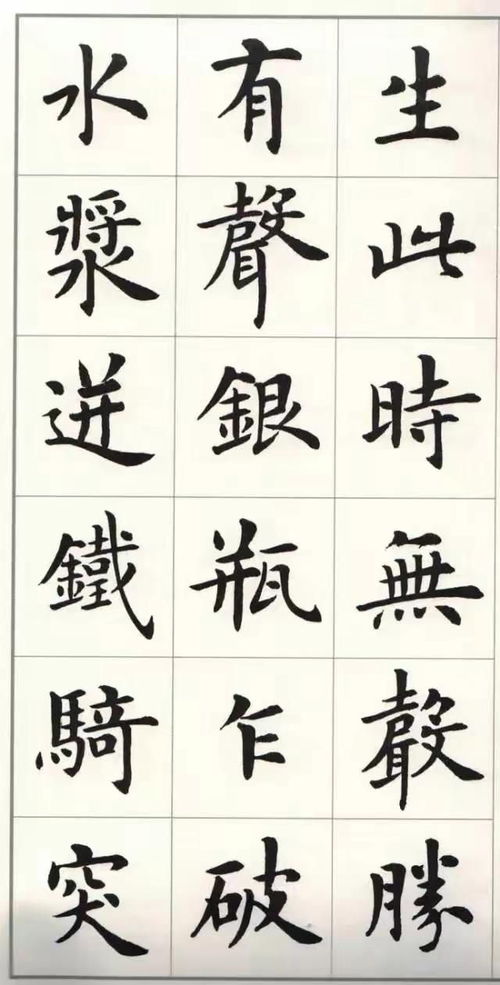 生此時無聲勝
有聲銀瓶乍破
水漿迸鐵騎突